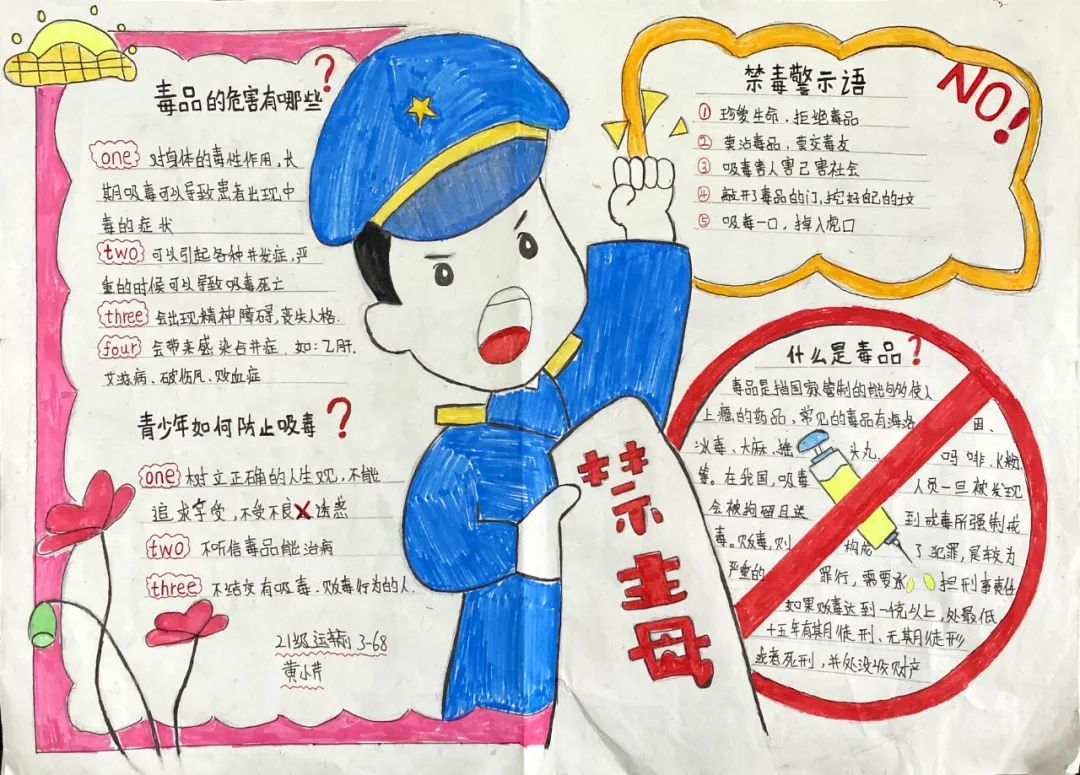 毒品的危害有哪些?
one 对身体的毒性作用,长
期吸毒可以导致患者出现中
毒的症状
two 可以引起各种并发症,严
重的时候可以导致吸毒死亡
three 会出现精神障碍,丧失人格.
four 会带来感染合并症,如:乙肝.
艾滋病、破伤风、败血症
青少年如何防止吸毒?
one 树立正确的人生观,不能
追求享受,不受不良诱惑
two 不听信毒品能治病
three 不结交有吸毒.贩毒行为的人.
21级运输 3-68
禁
毒
禁毒警示语
NO!
① 珍爱生命,拒绝毒品
② 莫沾毒品,莫交毒友
③ 吸毒害人害己害社会
④ 敲开了毒品的门,挖好自己的坟
⑤ 吸毒一口,掉入虎口
什么是毒品?
毒品是指国家管制的能够使人
上瘾的药品,常见的毒品有海洛因、
冰毒、大麻、摇头丸、吗啡、K粉
等。在我国,吸毒人员一旦被发现
会被拘留且送到戒毒所强制戒
毒。贩毒,则构成了犯罪,是较为
严重的罪行,需要承担刑事责任
如果贩毒达到一千克以上,处最低
十五年有期徒刑、无期徒刑
或者死刑,并处没收财产